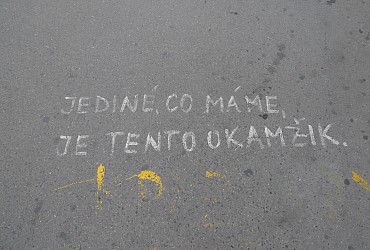 JEDINÉ, CO MÁME,
JE TENTO OKAMŽIK.